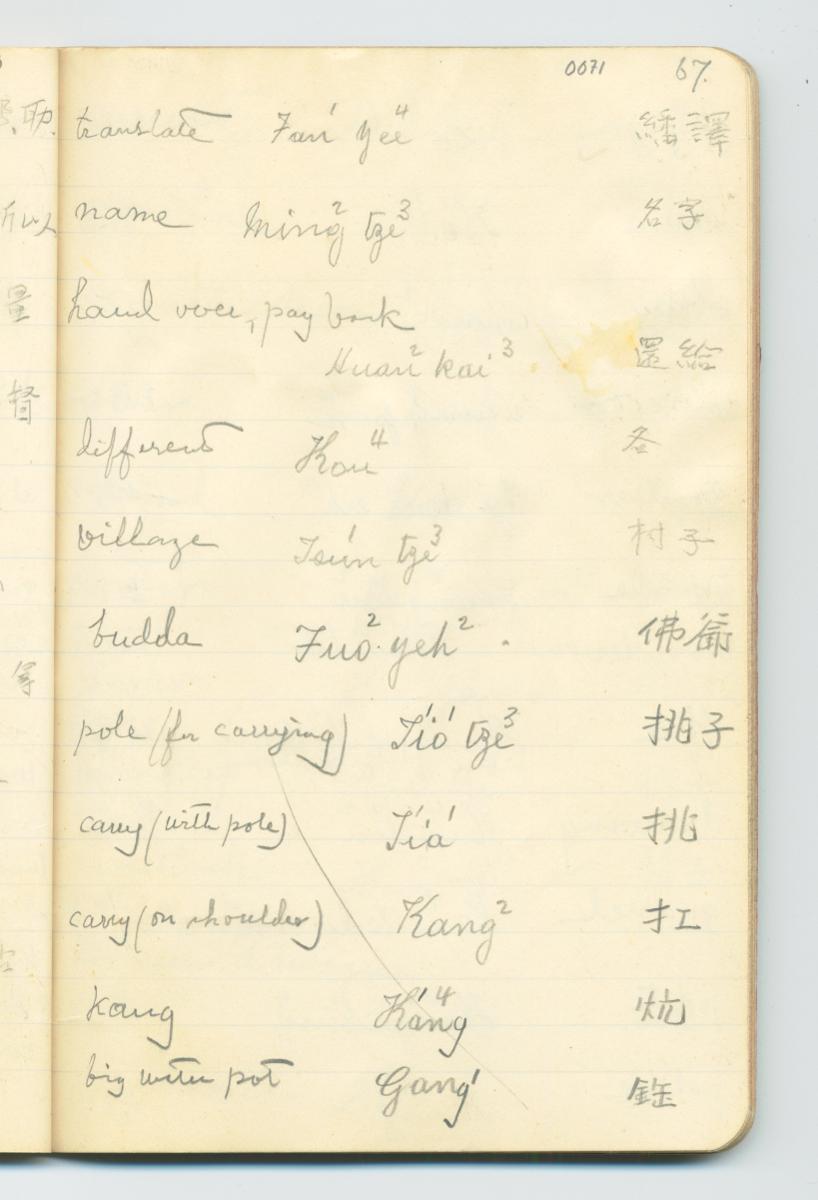 0071 67.
translate Fan' yee⁴ 繙譯
name Ming² tze³ 名字
hand over, pay back
Huan² kai³ 還給
different Kou⁴ 各
village Tsún tze³ 村子
budda Fuo² yeh² 佛爺
pole (for carrying) T'ió' tze³ 挑子
carry (with pole) T'iá' 挑
carry (on shoulder) Kang² 扛
kang K'ang⁴ 炕
big water pot Gang'
所以
量
督